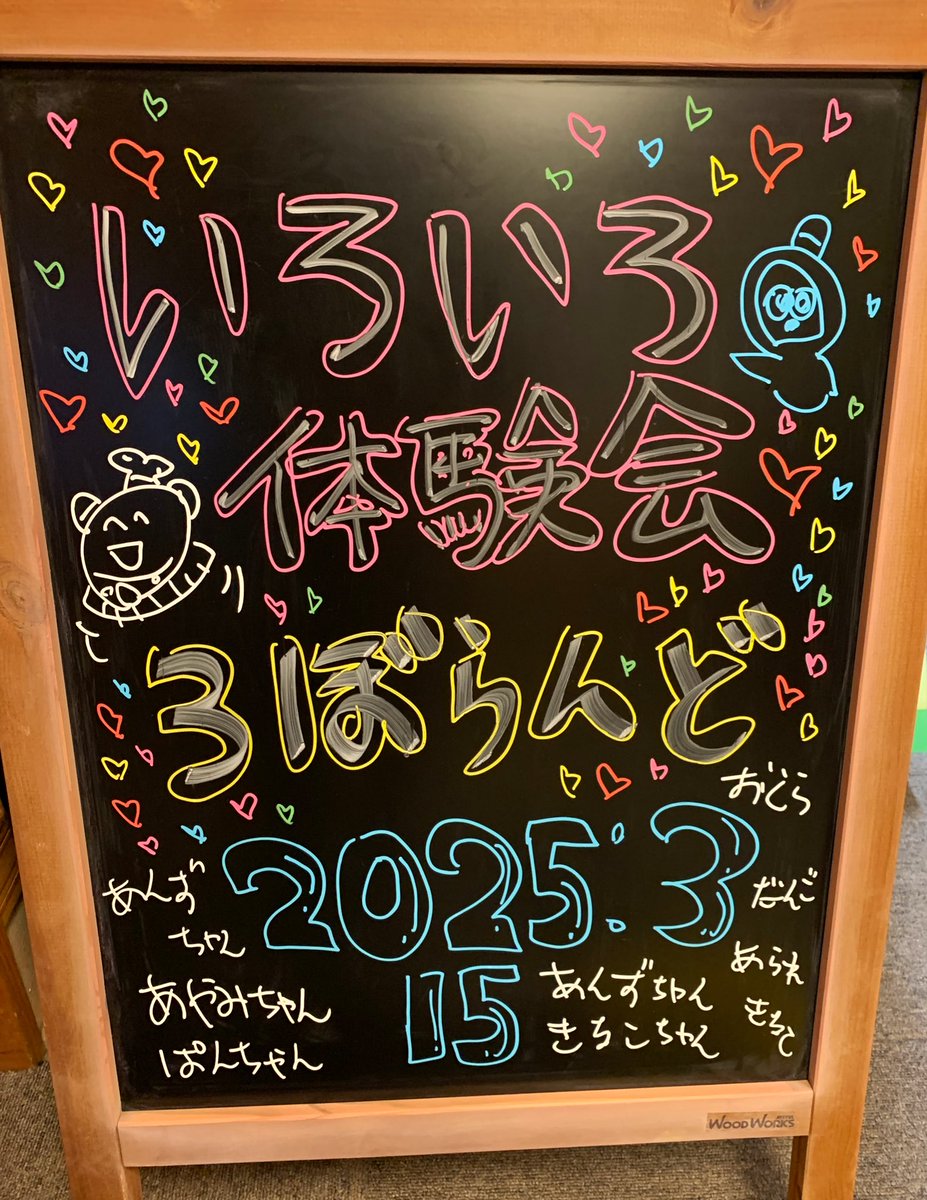 いろいろ
体験会
ろぼらんど
2025:3
15
おじら
あんず
ちゃん
だんご
あられ
きちこ
あやみちゃん
ぱんちゃん
あんずちゃん
きちこちゃん
WOOD WORKS